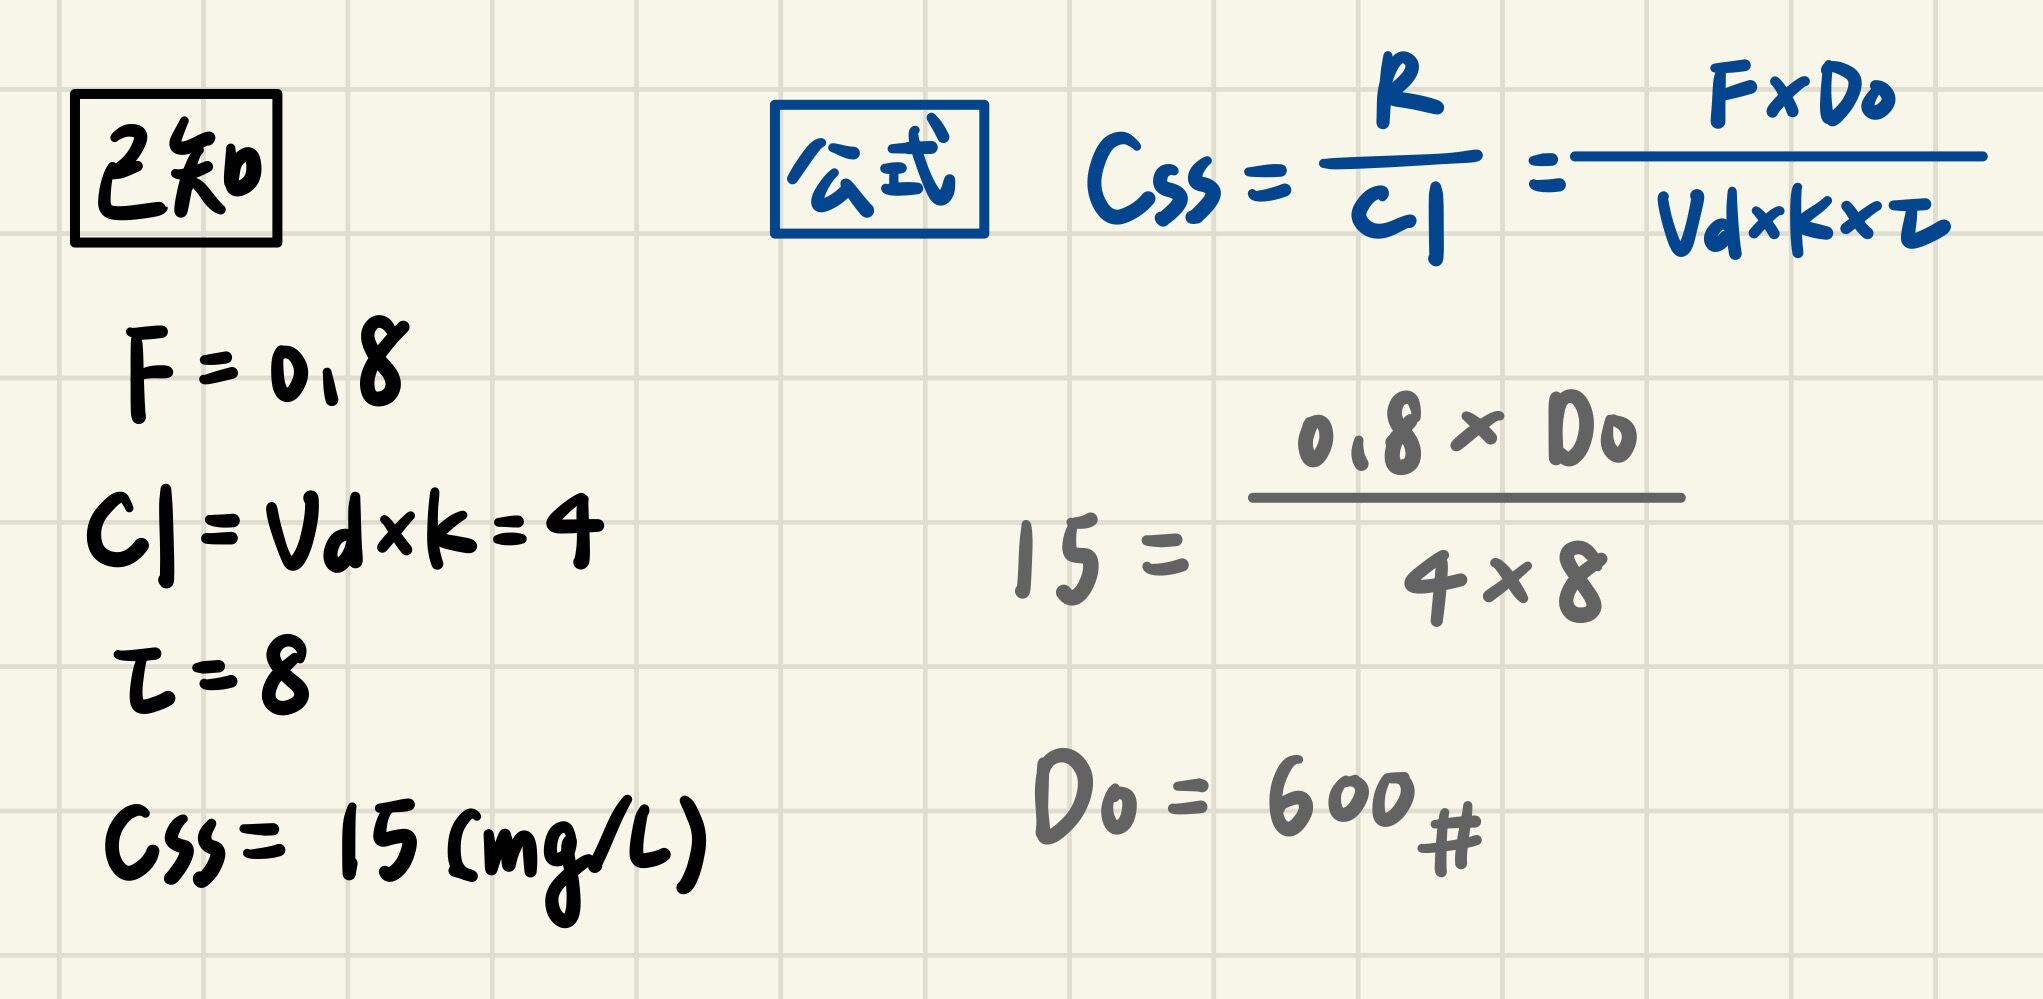 已知
F = 0.8
Cl = Vd×k = 4
τ = 8
Css = 15 (mg/L)
公式 Css = R/Cl = F×Do/Vd×k×τ
15 = 0.8 × Do/4 × 8
Do = 600#